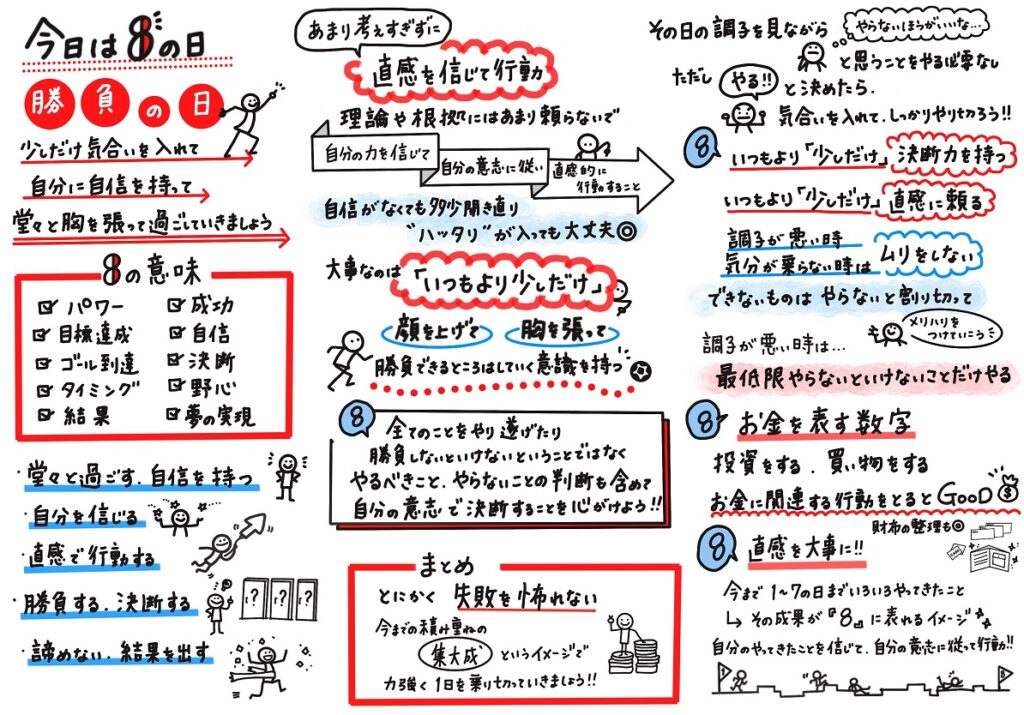 今日は8の日
勝負の日
少しだけ気合いを入れて
自分に自信を持って
堂々と胸を張って過ごしていきましょう
8の意味
パワー
目標達成
ゴール到達
タイミング
結果
成功
自信
決断
野心
夢の実現
・堂々と過ごす.自信を持つ
・自分を信じる
・直感で行動する
・勝負する.決断する
? ? ?
・諦めない.結果を出す
あまり考えすぎずに
直感を信じて行動
理論や根拠にはあまり頼らないで
自分の力を信じて
自分の意志に従い
直感的に
行動すること
自信がなくても多少開き直り
"ハッタリ"が入っても大丈夫◎
大事なのは
「いつもより少しだけ」
顔を上げて
胸を張って
勝負できるところはしていく意識を持つ
8
全てのことをやり遂げたり
勝負しないといけないということではなく
やるべきこと.やらないことの判断も含めて
自分の意志で決断することを心がけよう!!
まとめ
とにかく 失敗を怖れない
今までの積み重ねの
集大成 というイメージで
力強く1日を乗り切っていきましょう!!
その日の調子を見ながら
やらないほうがいいな…
と思うことをやる必要なし
ただし やる!! と決めたら.
気合いを入れて.しっかりやりきろう!!
8
いつもより「少しだけ」決断力を持つ
いつもより「少しだけ」直感に頼る
調子が悪い時
気分が乗らない時は ムリをしない
できないものは やらないと割り切って
メリハリを
つけていこう
調子が悪い時は…
最低限やらないといけないことだけやる
8 お金を表す数字
投資をする.買い物をする
お金に関連する行動をとるとGOOD
$
財布の整理も◎
8 直感を大事に!!
今まで 1〜7の日までいろいろやってきたこと
↳ その成果が『8』に表れるイメージ
自分のやってきたことを信じて.自分の意志に従って行動!!
1
8